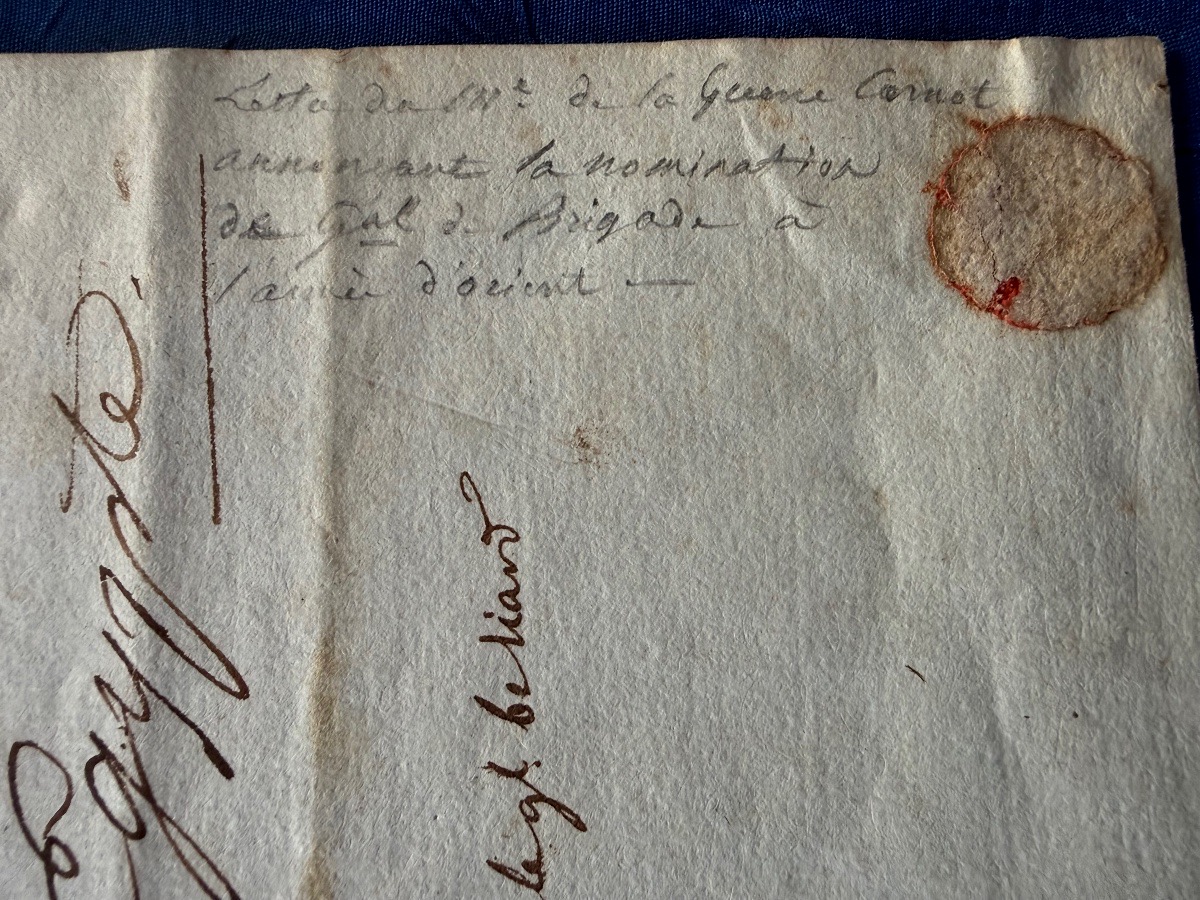 Lettre du Mtre de la Guerre Carnot
annonçant la nomination
de Gal de Brigade à
l'armée d'orient —
Egypte.
le gl. belliard